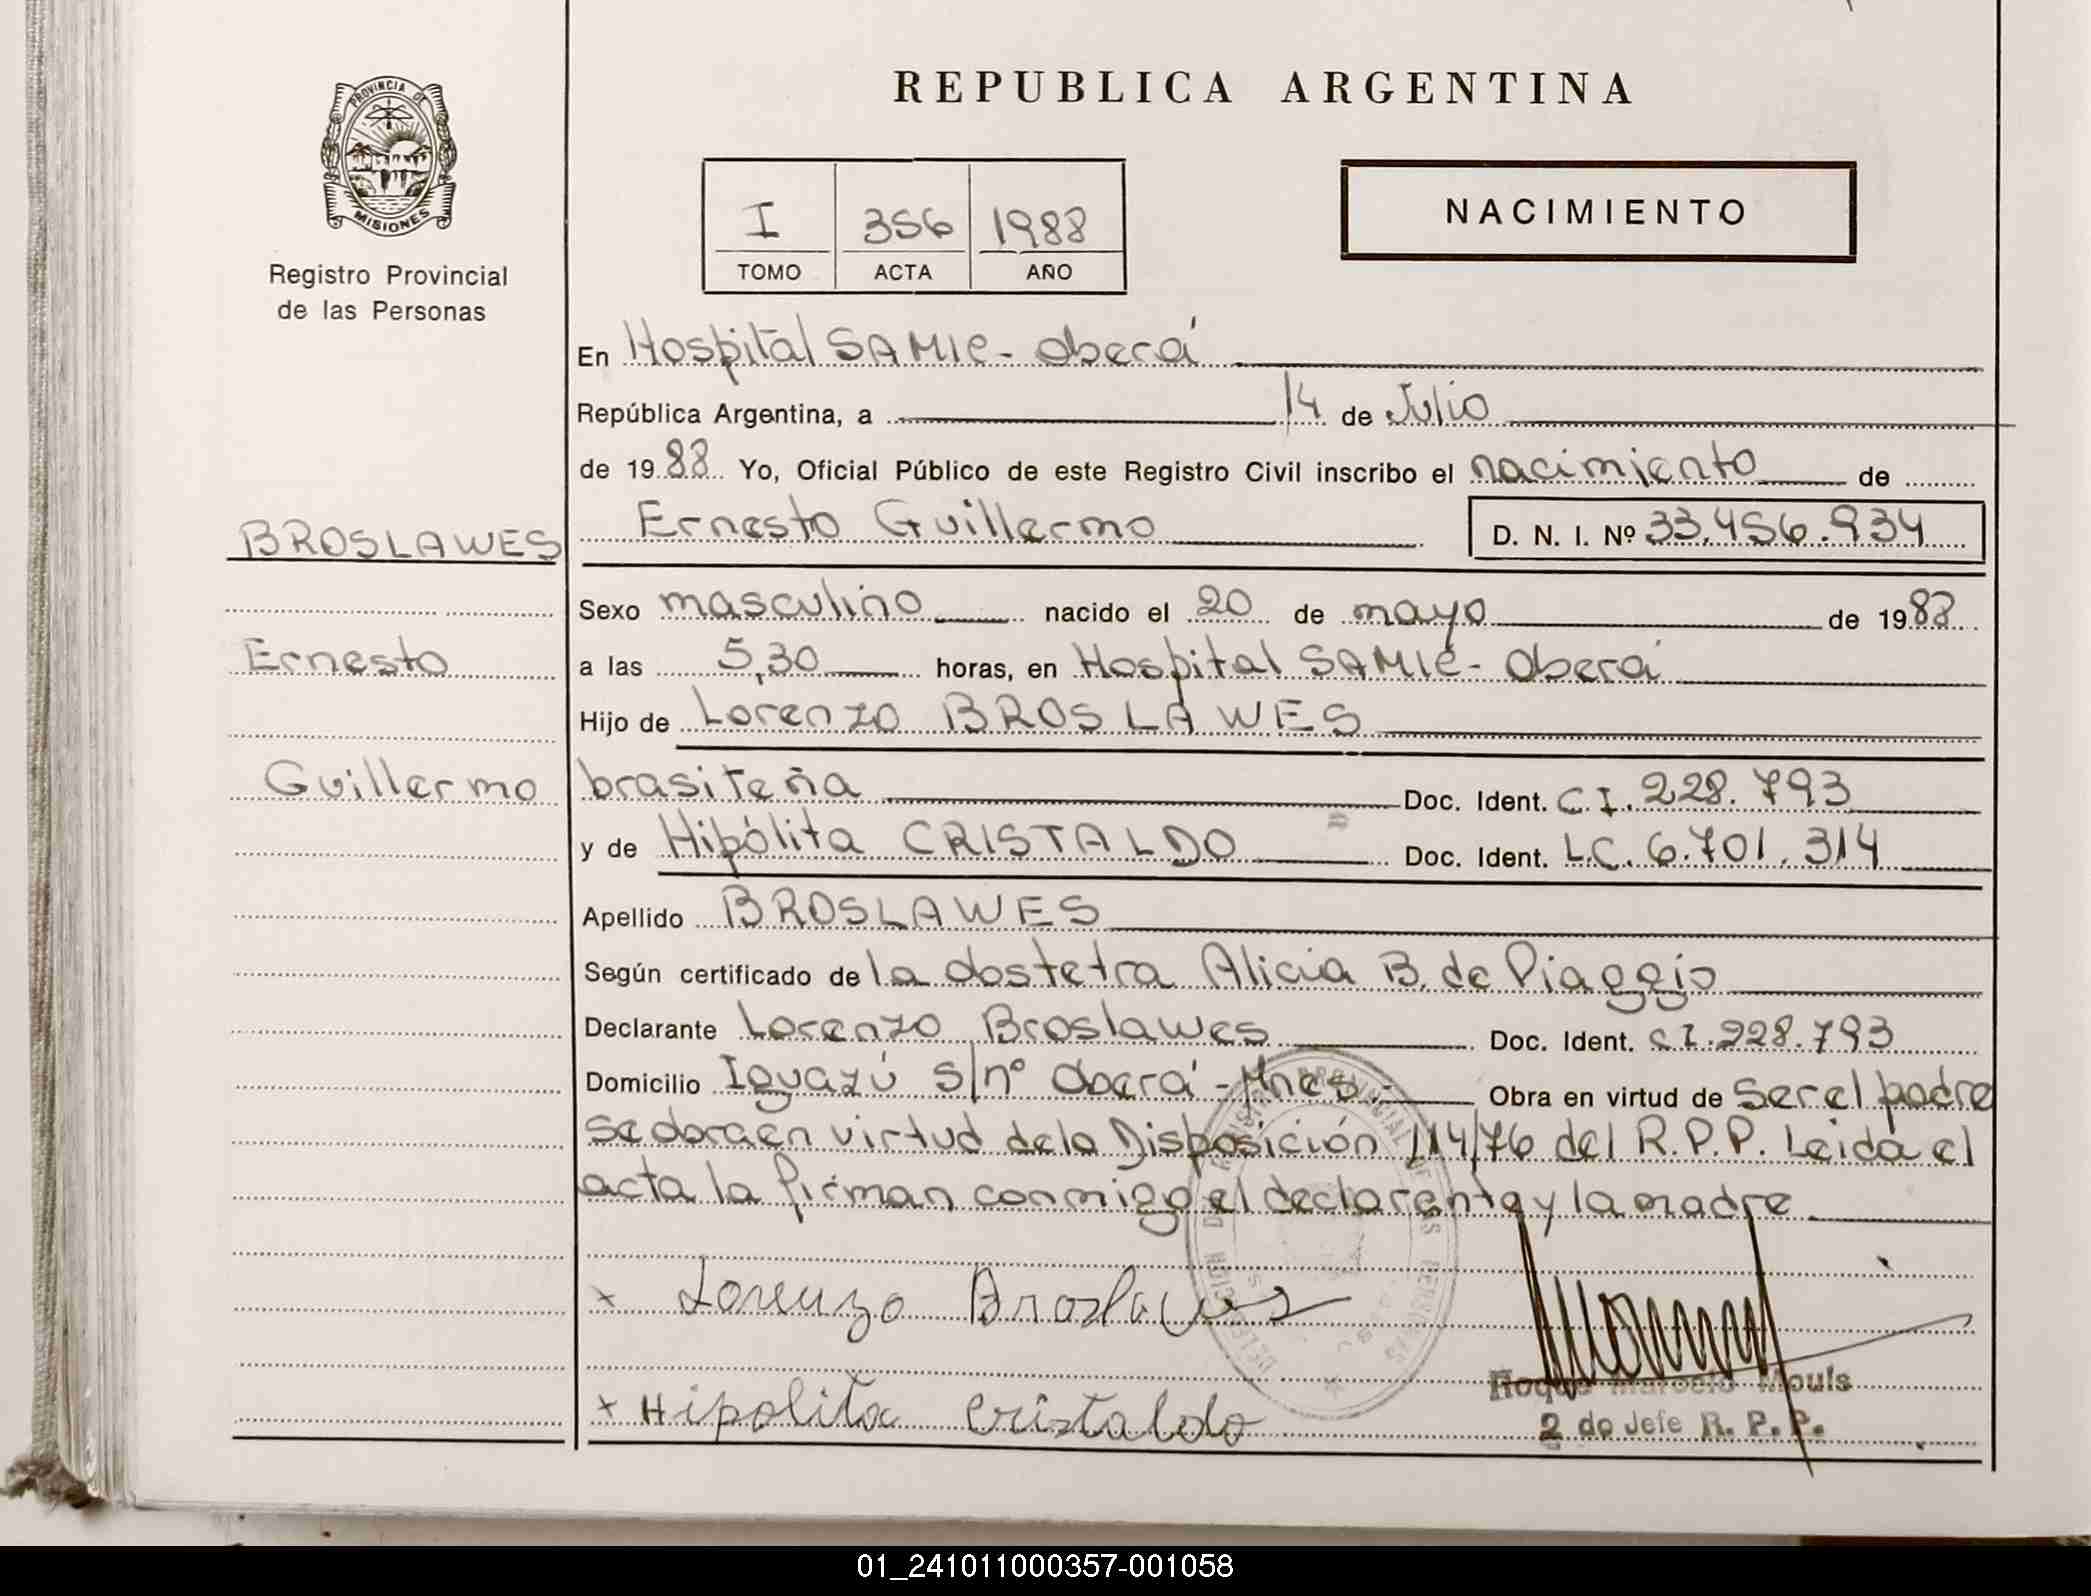 PROVINCIA DE
MISIONES
Registro Provincial
de las Personas
REPUBLICA ARGENTINA
I 356 1988
TOMO ACTA AÑO
NACIMIENTO
En Hospital SAMIC - Oberá
República Argentina, a 14 de Julio
de 1988 Yo, Oficial Público de este Registro Civil inscribo el nacimiento de
BROSLAWES Ernesto Guillermo D. N. I. Nº 33.456.934
Sexo masculino nacido el 20 de mayo de 1988
Ernesto a las 5,30 horas, en Hospital SAMIC - Oberá
Hijo de Lorenzo BROSLAWES
Guillermo brasileña Doc. Ident. C.I. 228.793
y de Hipólita CRISTALDO Doc. Ident. L.C. 6.701.314
Apellido BROSLAWES
Según certificado de la obstetra Alicia B. de Piaggio
Declarante Lorenzo Broslawes Doc. Ident. C.I. 228.793
Domicilio Iguazú s/nº Oberá - Mnes.- Obra en virtud de ser el padre
se labra en virtud de la Disposición 114/76 del R.P.P. Leida el
acta la firman conmigo el declarante y la madre
x Lorenzo Broslawes
Roque Marcelo Mouls
x Hipolita Cristaldo
2 do Jefe R. P. P.
01_241011000357-001058